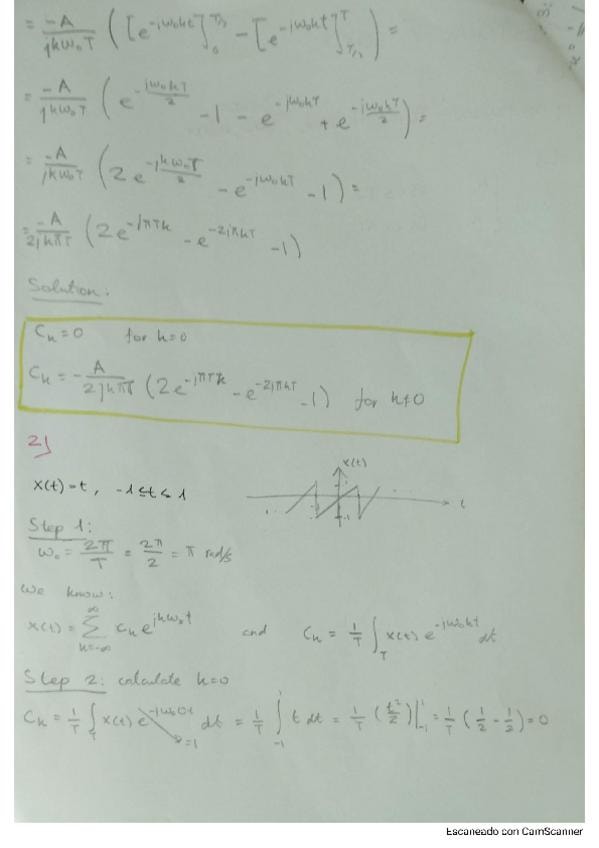 = -A/(jkω₀T) ([e^{-jω₀kt}]_0^{T/2} - [e^{-jω₀kt}]_{T/2}^{T}) =
= -A/(jkω₀T) (e^{-jω₀kT/2} - 1 - e^{-jω₀kT} + e^{-jω₀kT/2}) =
= -A/(jkω₀T) (2e^{-jkω₀T/2} - e^{-jω₀kT} - 1) =
= -A/(2jkπT) (2e^{-jπTk} - e^{-2jπkT} - 1)
Solution:
C_k = 0 for k=0
C_k = -A/(2jkπT) (2e^{-jπTk} - e^{-2jπkT} - 1) for k≠0
2)
x(t)
x(t) = t, -1 ≤ t < 1
t
Step 1:
ω₀ = 2π/T = 2π/2 = π rad/s
We know:
x(t) = ∑_{k=-∞}^{∞} c_k e^{jkω₀t} and C_k = 1/T ∫_T x(t) e^{-jω₀kt} dt
Step 2: calculate k=0
C_k = 1/T ∫_T x(t) e^{-jω₀0t} dt = 1/T ∫_{-1}^{1} t dt = 1/T (t²/2)|_{-1}^{1} = 1/T (1/2 - 1/2) = 0
=1
Escaneado con CamScanner